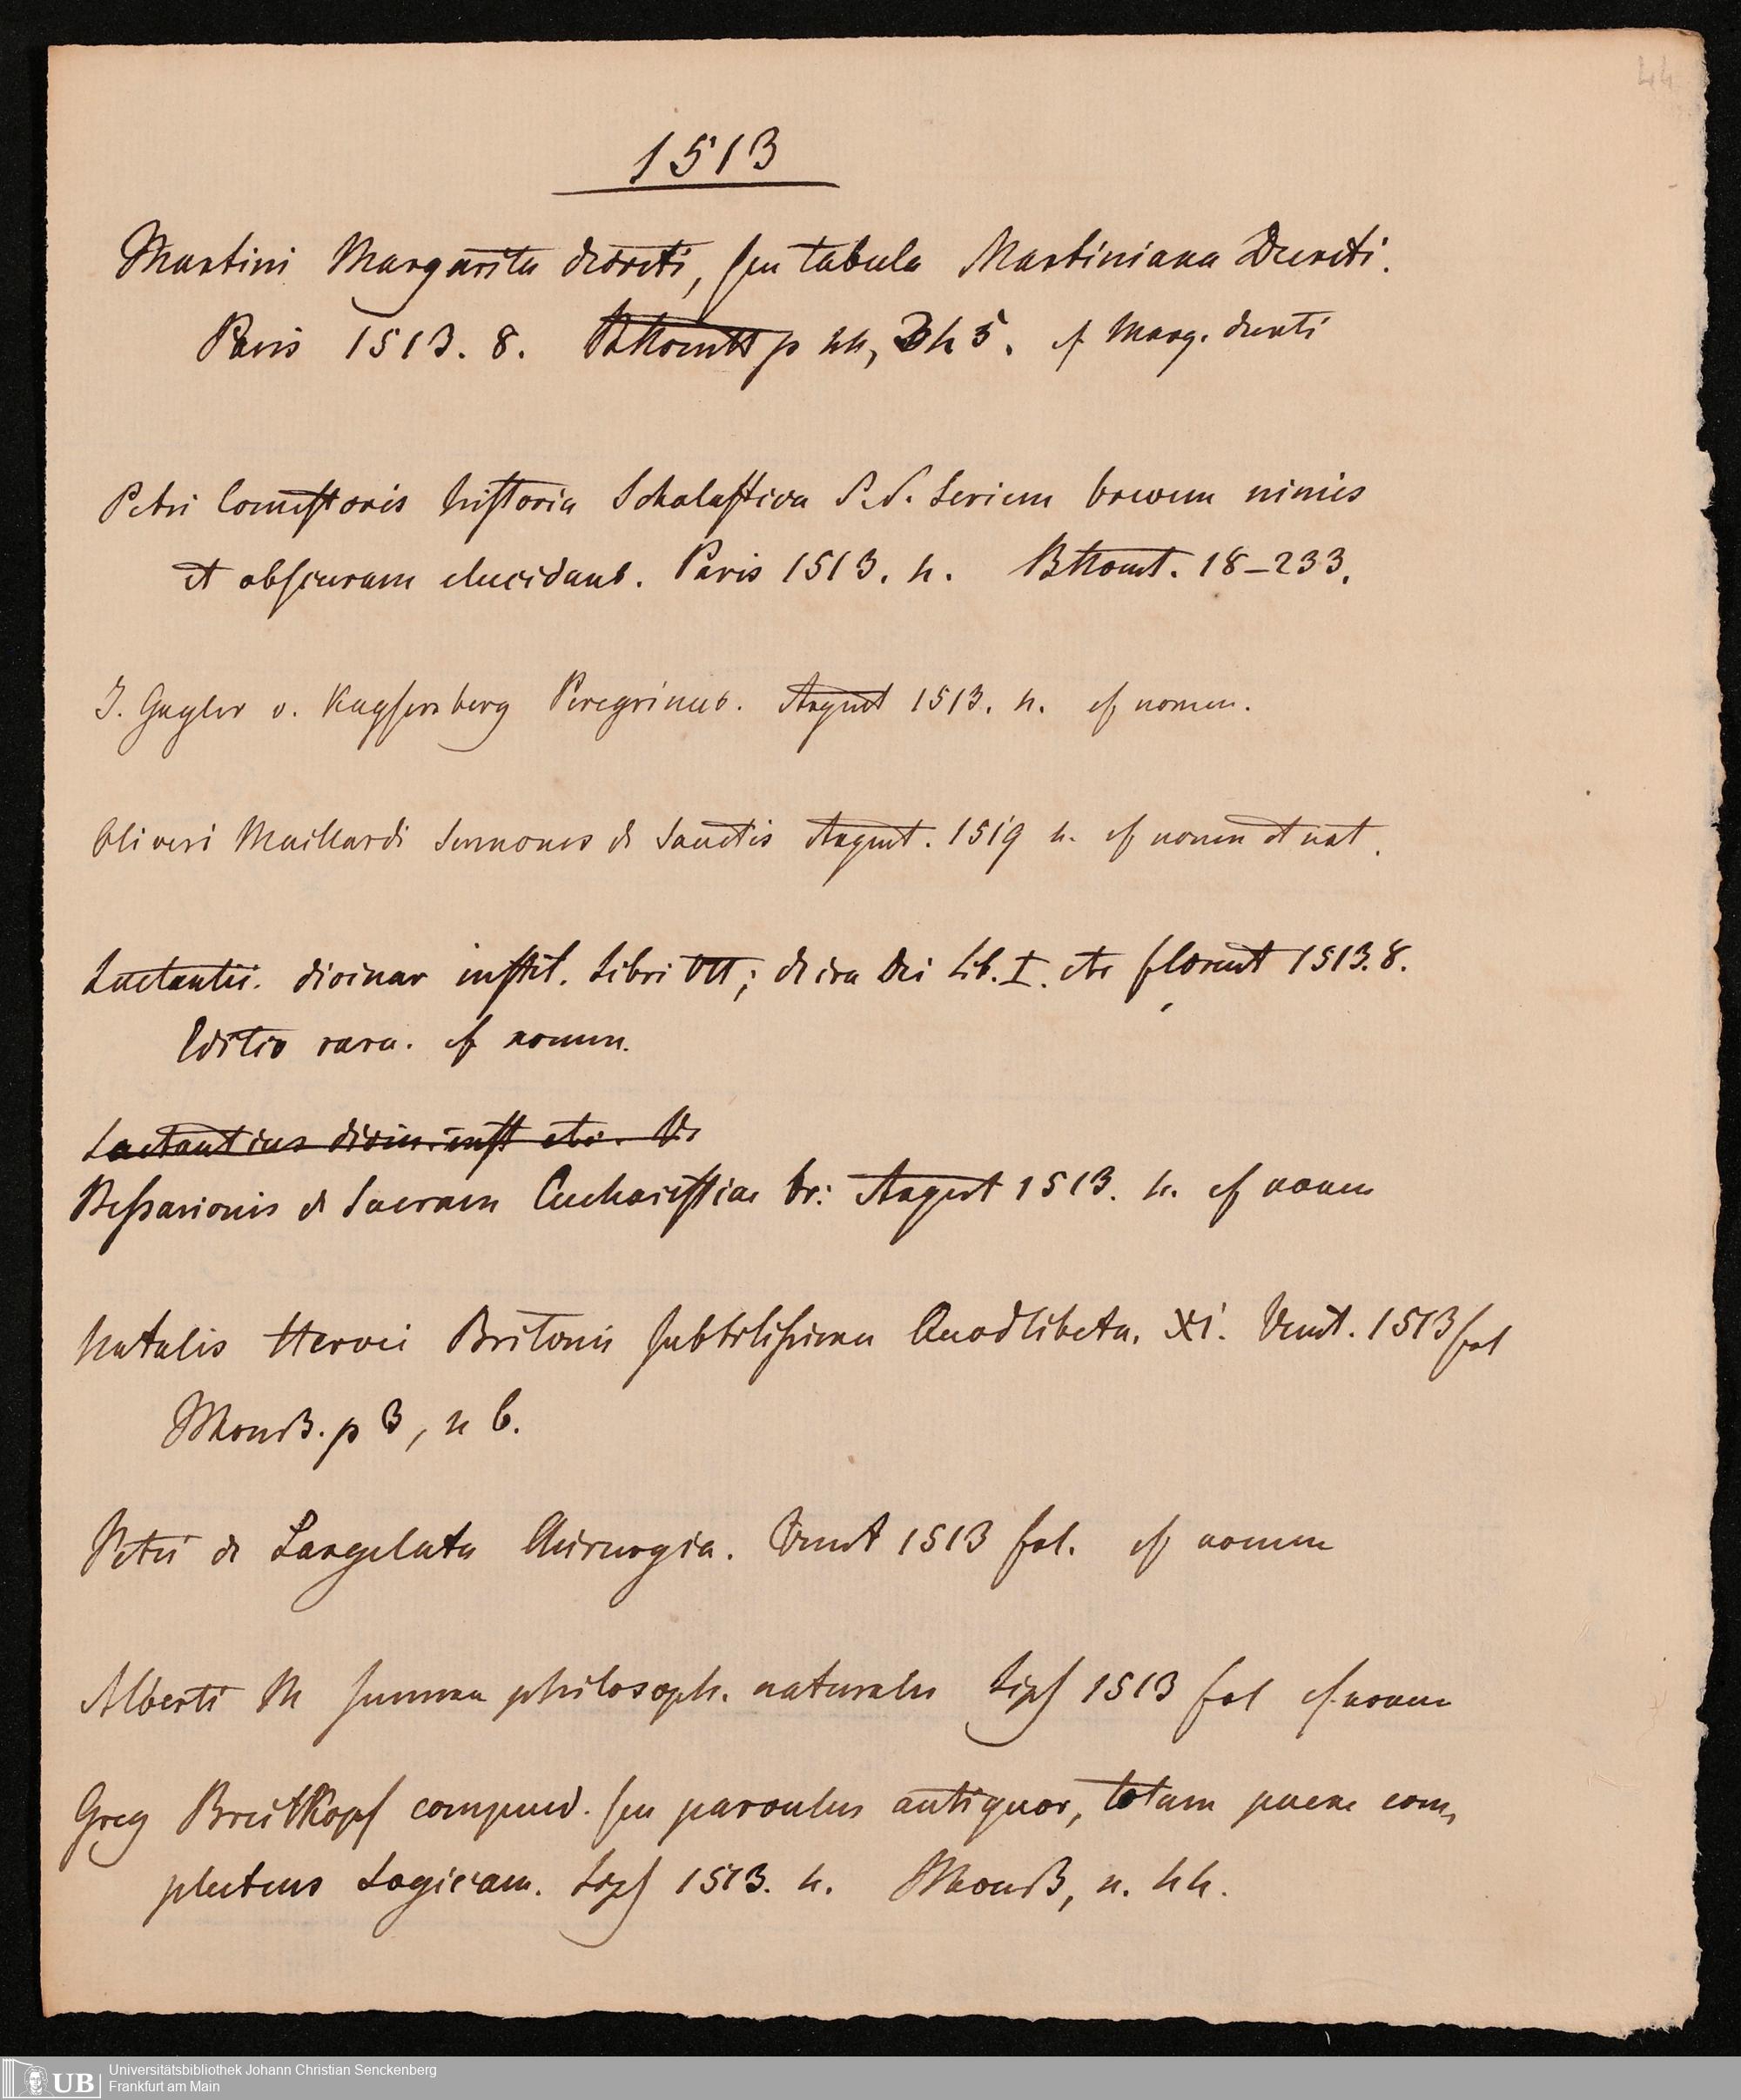 44
1513
Martini Margarita decreti, seu tabula Martiniana Decreti.
Paris 1513. 8. p 44, 345. cf Marg. decreti
Petri Comestoris historia Scholastica S. S. Seriem brevem nimis
et obscuram elucidans. Paris 1513. 4. BKomt. 18-233.
J. Gayler v. Kaysersberg Peregrinus. Argent 1513. 4. cf nomen.
Oliveri Maillardi Sermones de Sanctis Argent. 1519 4. cf nomen et nat.
Lactantii. divinar instit. Libri VII; de ira Dei Lib. I. etc florent 1513. 8.
Editio rara. cf nomen.
Lactantius divin. inst etc. V.
Bessarionis de Sacram Eucharistiae br: Argent 1513. 4. cf nomen
Natalis Hervei Britonis subtilissima Quodlibeta. XI. Venet. 1513 fol
p 3, n 6.
Petri de Largelata Chirurgia. Venet 1513 fol. cf nomen
Alberti M summa philosoph. naturales Lips 1513 fol cf nomen
Greg Breitkopf compend. seu parvulus antiquor, totam paene com,
plectens Logicam. Lips 1513. 4. n. 44.
UB Universitätsbibliothek Johann Christian Senckenberg
Frankfurt am Main